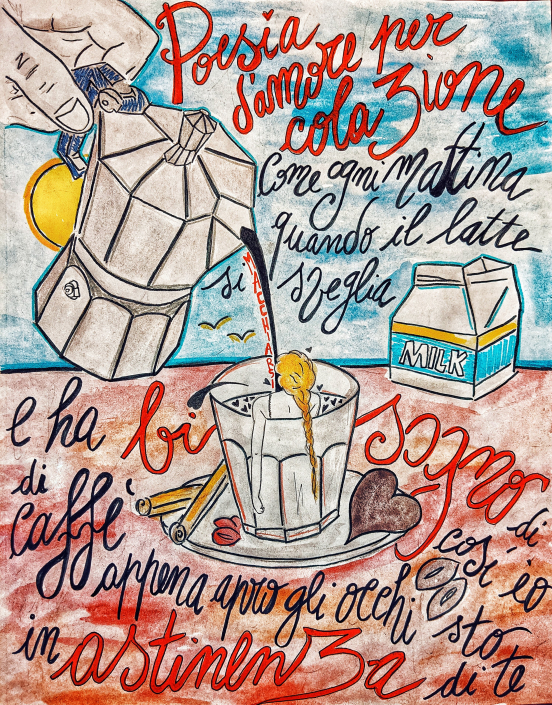 Poesia
d'amore per
colazione
Come ogni mattina
quando il latte
si sveglia
MILK
e ha bisogno
di
MACCHIARSI
di
caffè
così io
appena apro gli occhi
sto
in astinenza
di te